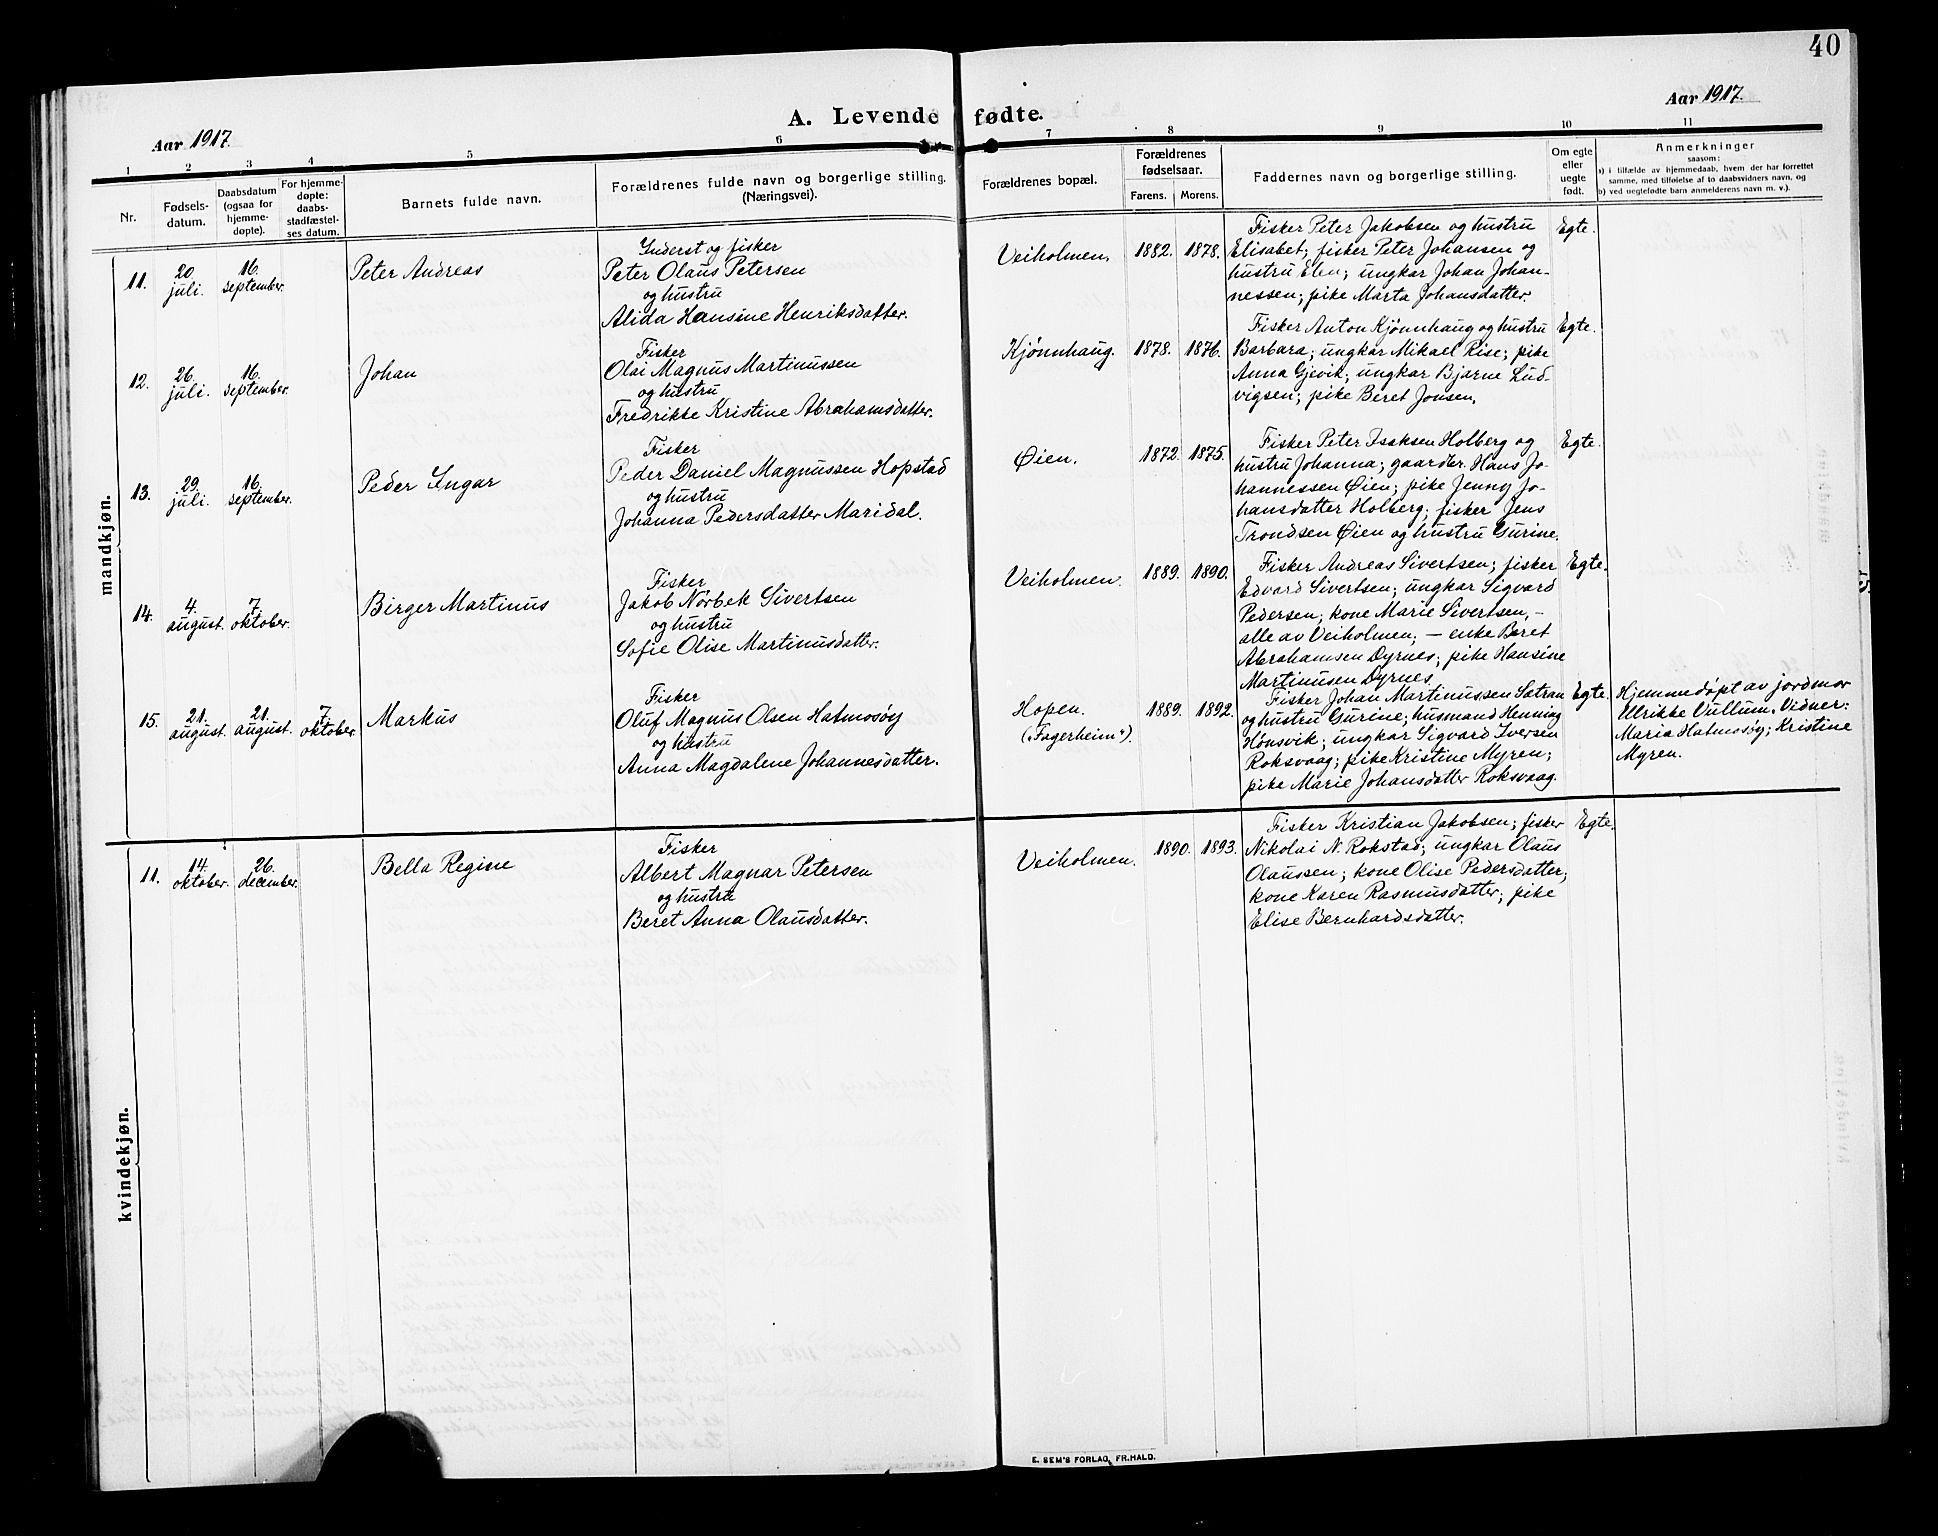 40
Aar 1917.
A. Levende fødte.
Aar 1917.
1 2 3 4 5 6 7 8 9 10 11
Nr.
Fødsels-
datum.
Daabsdatum
(ogsaa for
hjemme-
døpte).
For hjemme-
døpte:
daabs-
stadfæstel-
ses datum.
Barnets fulde navn.
Forældrenes fulde navn og borgerlige stilling.
(Næringsvei).
Forældrenes bopæl.
Forældrenes
fødselsaar.
Farens. Morens.
Faddernes navn og borgerlige stilling.
Om egte
eller
uegte
født.
Anmerkninger
saasom:
a) i tilfælde av hjemmedaab, hvem der har forrettet
samme, med tilføielse af to daabsvidners navn, og
b) ved uegtefødte barn anmelderens navn m. v.).
mandkjøn.
11.
20.
juli.
16.
september.
Peter Andreas
Inderst og fisker
Peter Olaus Petersen
og hustru
Alida Hansine Henriksdatter.
Veiholmen. 1882. 1878.
Fisker Peter Jakobsen og hustru
Elisabet; fisker Peter Johansen og
hustru Elen; ungkar Johan Johan-
nessen; pike Marta Johansdatter.
Egte.
12.
26.
juli.
16.
september.
Johan
Fisker
Olai Magnus Martinussen
og hustru
Fredrikke Kristine Abrahamsdatter.
Kjønnhaug. 1878. 1876.
Fisker Anton Kjønnhaug og hustru
Barbara; ungkar Mikael Rise; pike
Anna Gjevik; ungkar Bjarne Lud-
vigsen; pike Beret Jonsen.
Egte.
13.
29.
juli.
16.
september.
Peder Ingar
Fisker
Peder Daniel Magnussen Hopstad
og hustru
Johanna Pedersdatter Maridal.
Øien. 1872. 1875.
Fisker Peter Isaksen Holberg og
hustru Johanna; gaardbr. Hans Jo-
hannessen Øien; pike Jenny Jo-
hansdatter Holberg; fisker Jens
Trondsen Øien og hustru Gurine.
Egte.
14.
4.
august.
7.
oktober.
Birger Martinus
Fisker
Jakob Nørbek Sivertsen
og hustru
Sofie Olise Martinusdatter.
Veiholmen. 1889. 1890.
Fisker Andreas Sivertsen; fisker
Edvard Sivertsen; ungkar Sigvard
Pedersen; kone Marie Sivertsen, –
alle av Veiholmen; – enke Beret
Abrahamsen Dyrnes; pike Hansine
Martinusen Dyrnes.
Egte.
15.
21.
august.
21.
august.
7.
oktober.
Markus
Fisker
Oluf Magnus Olsen Hatmosøy
og hustru
Anna Magdalene Johannesdatter.
Hopen.
("Fagerheim").
1889. 1892.
Fisker Johan Martinussen Sætran
og hustru Gurine; husmand Henning
Hønsvik; ungkar Sigvard Iversen
Roksvaag; pike Kristine Myren;
pike Marie Johansdatter Roksvaag.
Egte.
Hjemmedøpt av jordmor
Ulrikke Vullum. Vidner:
Maria Hatmosøy; Kristine
Myren.
kvindekjøn.
11.
14.
oktober.
26.
december.
Bella Regine
Fisker
Albert Magnar Petersen
og hustru
Beret Anna Olausdatter.
Veiholmen. 1890. 1893.
Fisker Kristian Jakobsen; fisker
Nikolai N. Rokstad; ungkar Olaus
Olaussen; kone Olise Pedersdatter;
kone Karen Rasmusdatter; pike
Elise Bernhardsdatter.
Egte.
E. SEM'S FORLAG, FR.HALD.